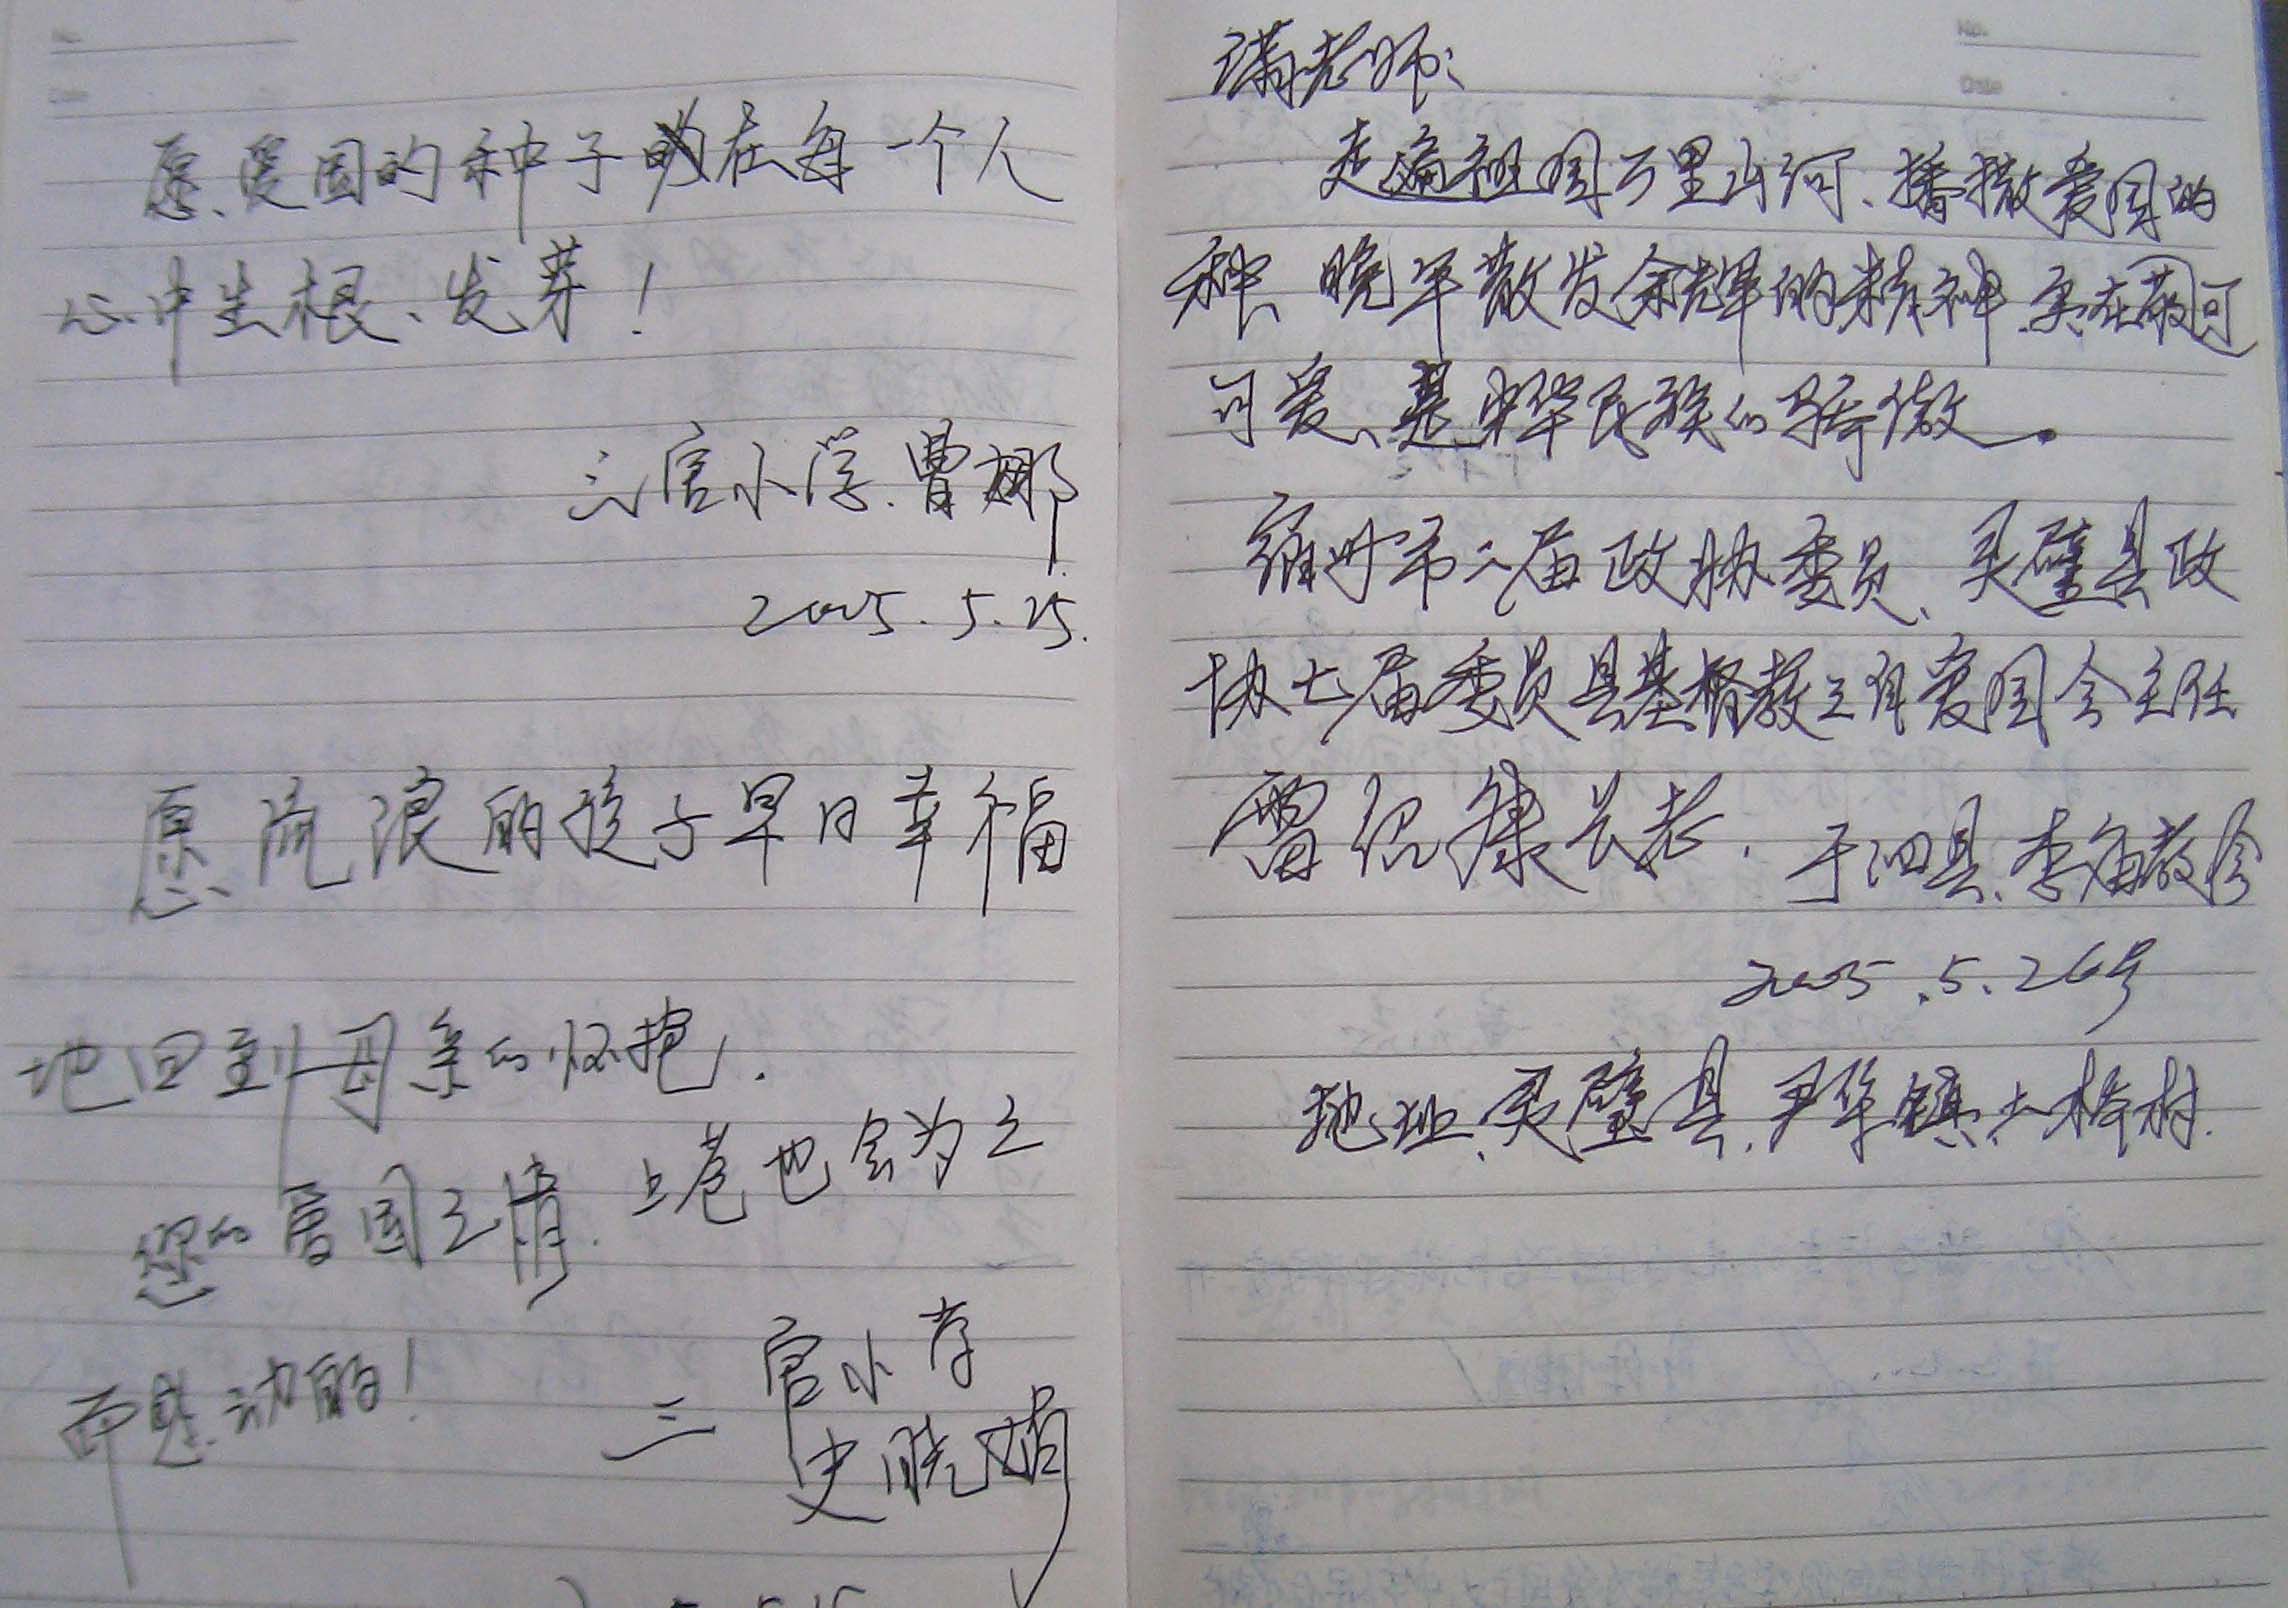 愿爱国的种子在每一个人
心中生根、发芽！
三官小学.曾娜
2005.5.25.
愿流浪的孩子早日幸福
地回到母亲的怀抱.
您的爱国之情.上苍也会为之
而感动的！
三官小学
史晓娟
No.
Date
满老师:
走遍祖国万里山河、播撒爱国的
种、晚年散发余辉的精神、实在可
可爱、是中华民族的骄傲。
宿州市二届政协委员、灵璧县政
协七届委员县基督教三自爱国会主任
雷绍康长老.于泗县、李庙教会
2005.5.26号
地址、灵璧县.尹集镇大桥村.